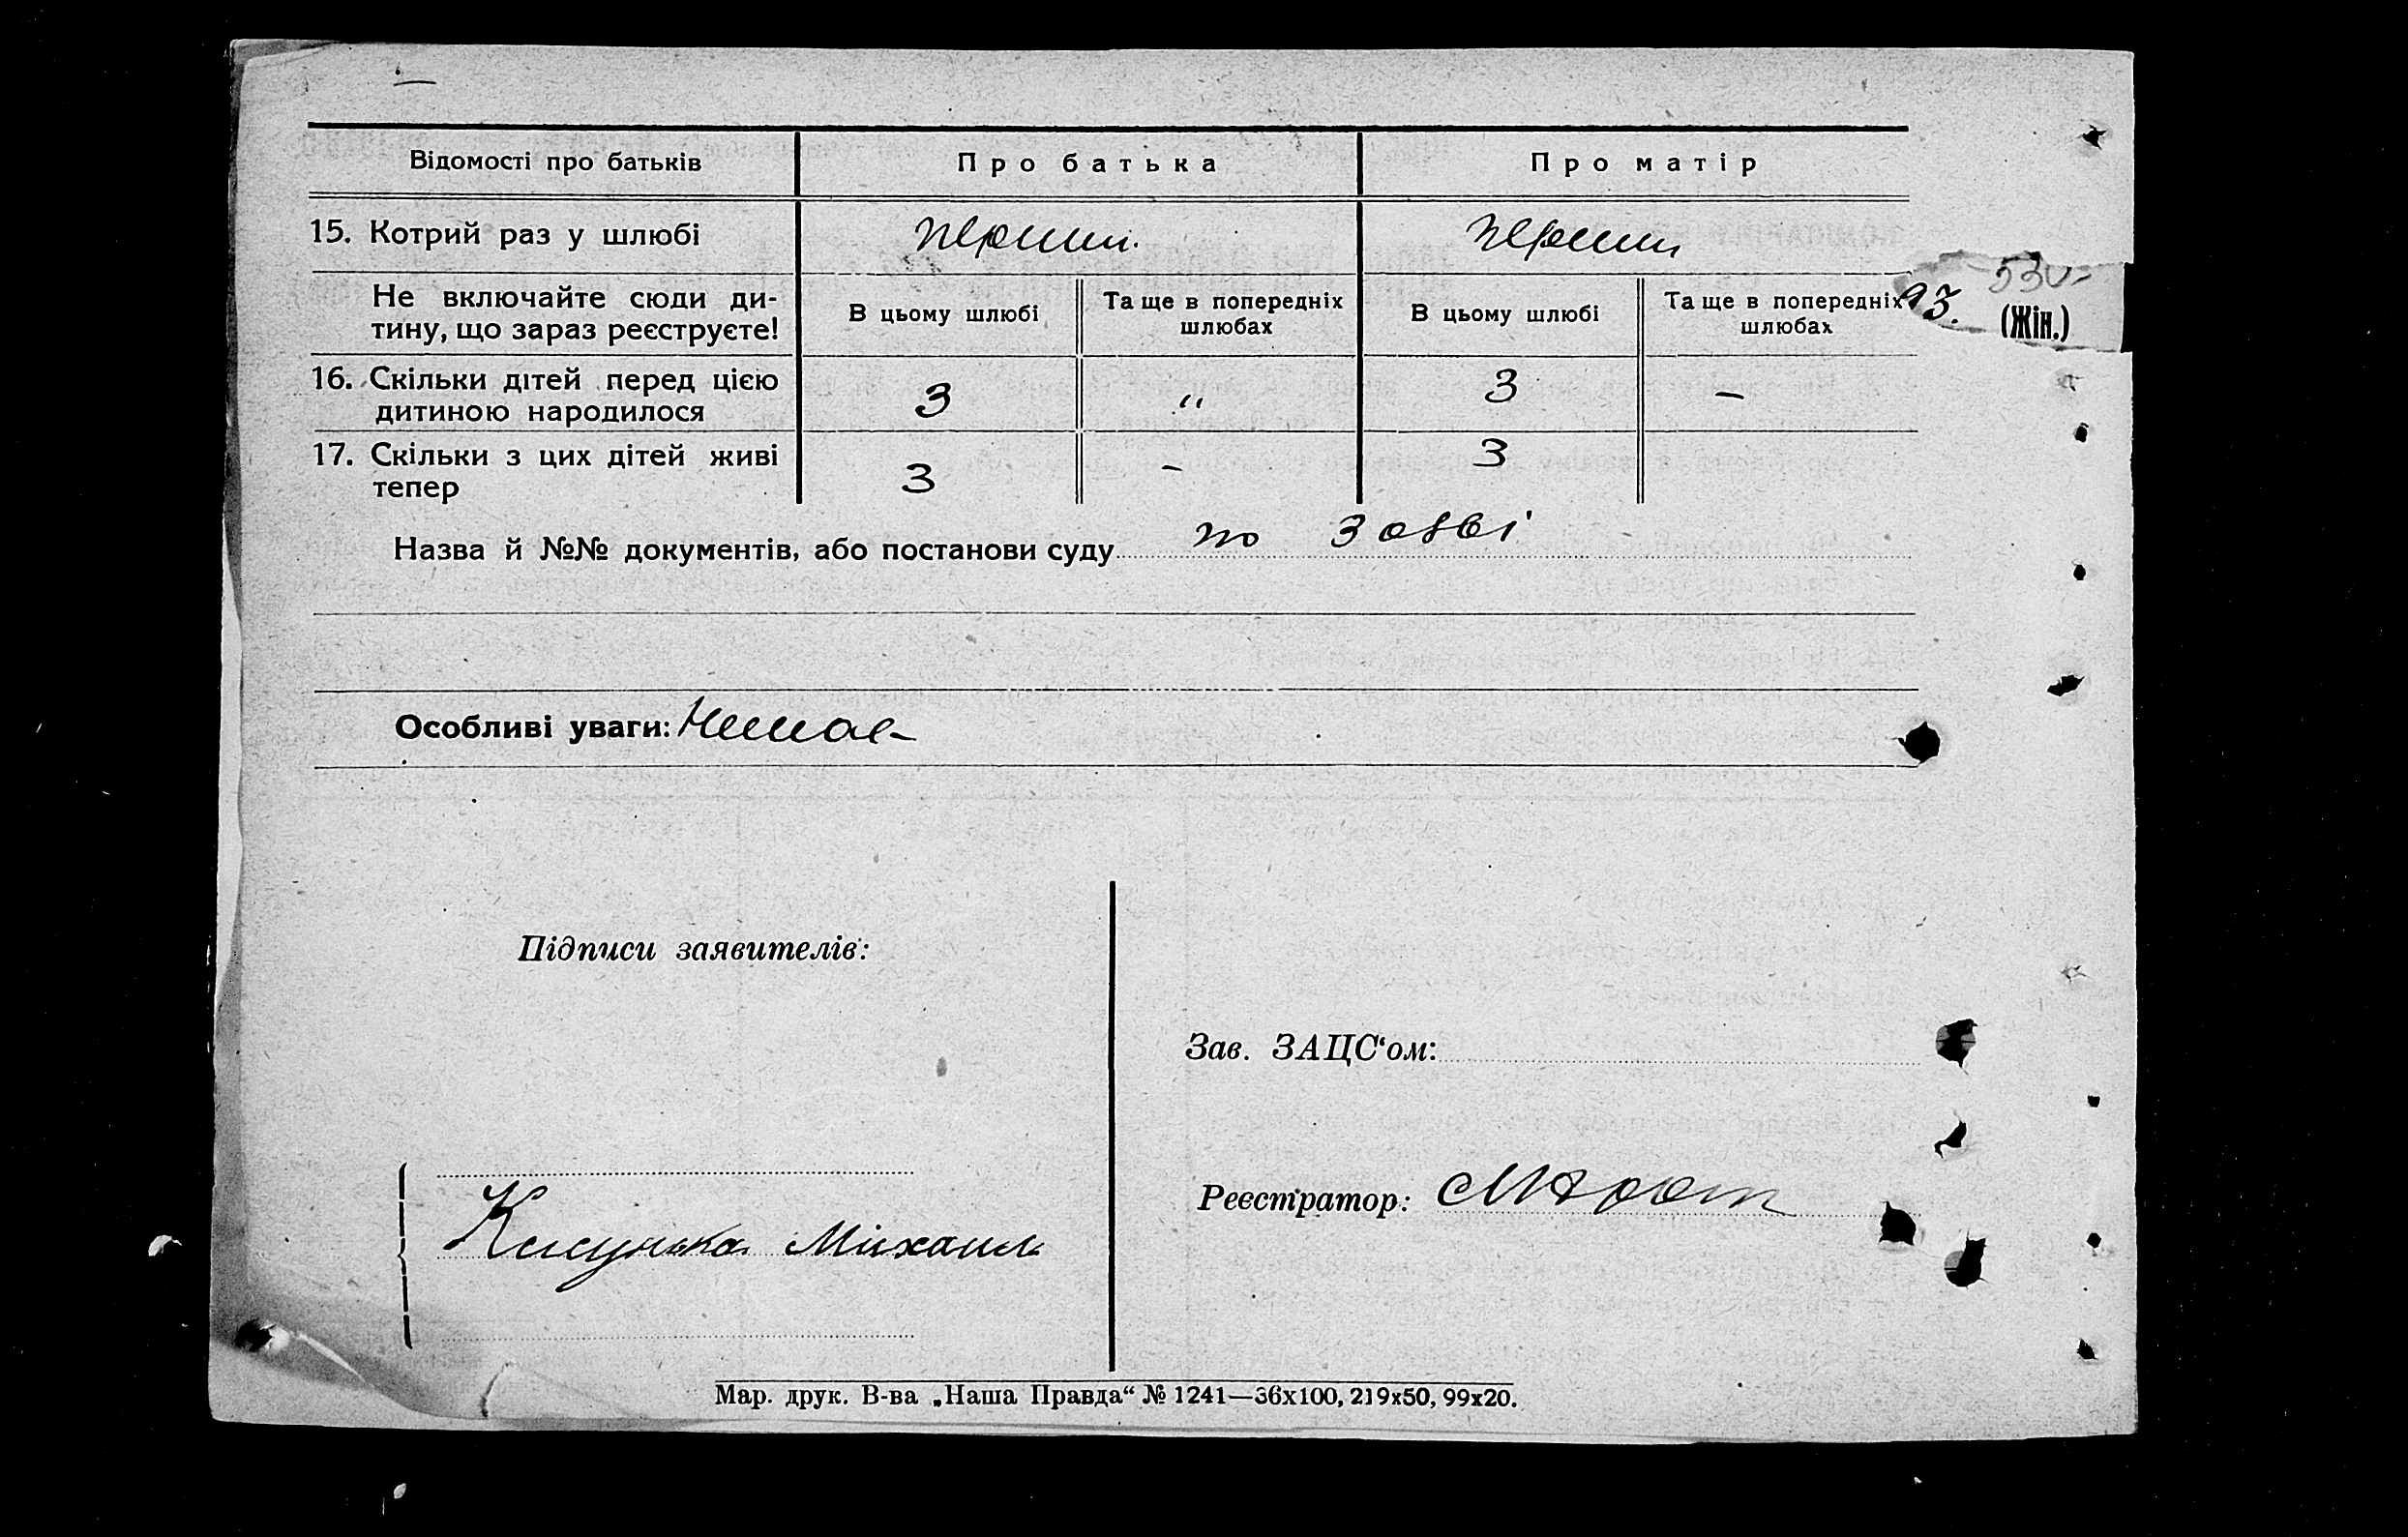 Відомості про батьків Про батька Про матір
15. Котрий раз у шлюбі перший. перший
Не включайте сюди ди-
тину, що зараз реєструєте!
В цьому шлюбі Та ще в попередніх
шлюбах
В цьому шлюбі Та ще в попередніх
шлюбах
93. 530
(Жін.)
16. Скільки дітей перед цією
дитиною народилося
3 " 3 —
17. Скільки з цих дітей живі
тепер
3 - 3
Назва й №№ документів, або постанови суду по заяві
Особливі уваги: Немає
Підписи заявителів:
Зав. ЗАЦС‘ом:
Реєстратор:
Михаил
Мар. друк. В-ва „Наша Правда“ № 1241—36х100, 219х50, 99х20.